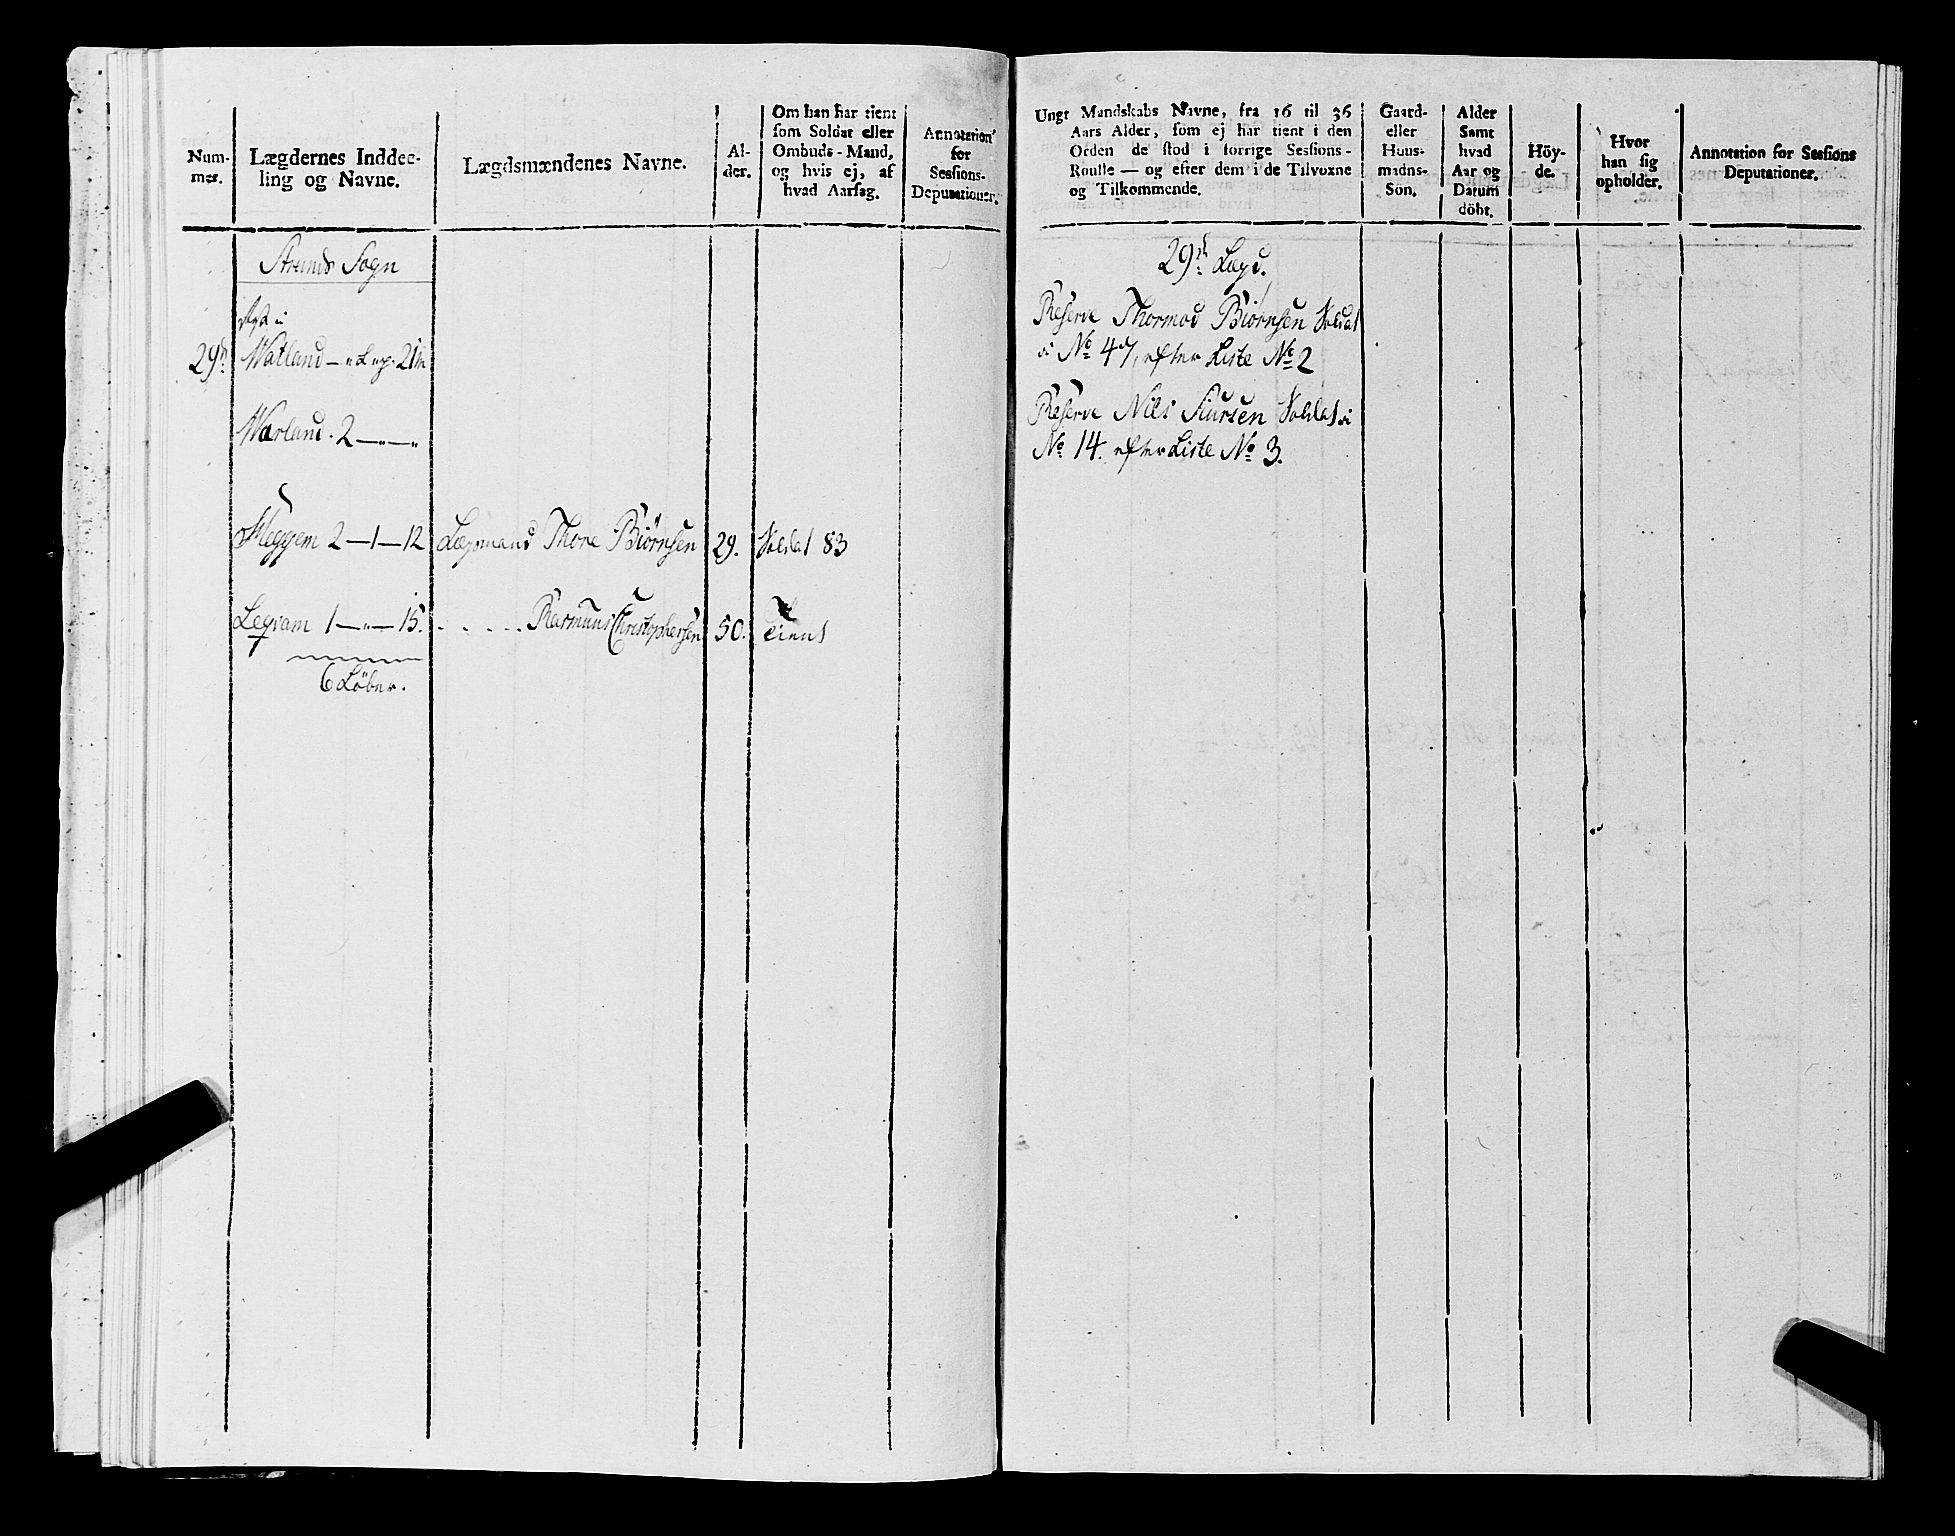 Num-
mer.
Lægdernes Inddee-
ling og Navne.
Lægdsmændenes Navne.
Al-
der.
Om han har tient
som Soldat eller
Ombuds-Mand,
og hvis ej, af
hvad Aarsag.
Annotation
for
Sessions-
Deputationer.
Strands Sogn
29d
Watland
Warland. 2 — " — "
Meggem 2 — 1 — 12
Lægsmand Thore Biørnsen
29.
Soldat 83
Legvam 1 — " — 15.
. . . . . Rasmuus Christophersen
50.
tient
6 Löber.
Ungt Mandskabs Navne, fra 16 til 36
Aars Alder, som ej har tient i den
Orden de stod i forrige Sessions-
Roulle — og efter dem i de Tilvoxne
og Tilkommende.
Gaard-
eller
Huus-
madns-
Sön.
Alder
Samt
hvad
Aar og
Datum
döbt.
Höy-
de.
Hvor
han sig
opholder.
Annotation for Sessions
Deputationer.
29d Lægd.
Reserve Thormod Biørnsen Soldat
i No 47, efter Liste No 2
Reserve Nils Siursen Soldat i
No 14. efter Liste No 3.